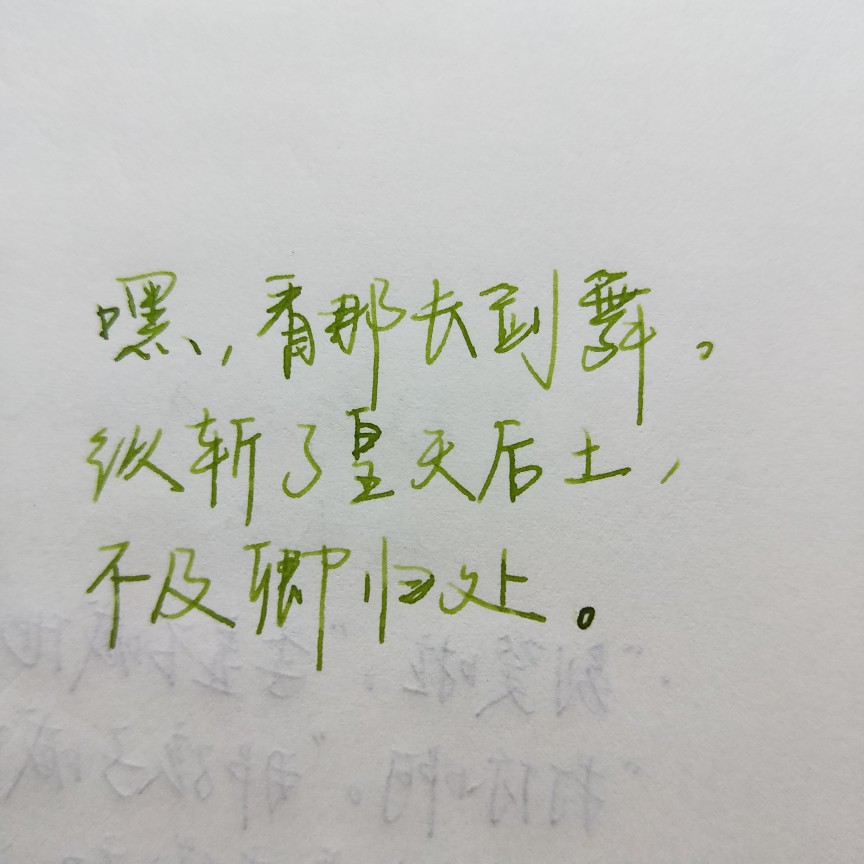 嘿，看那长剑舞。
纵斩了皇天后土，
不及卿归处。